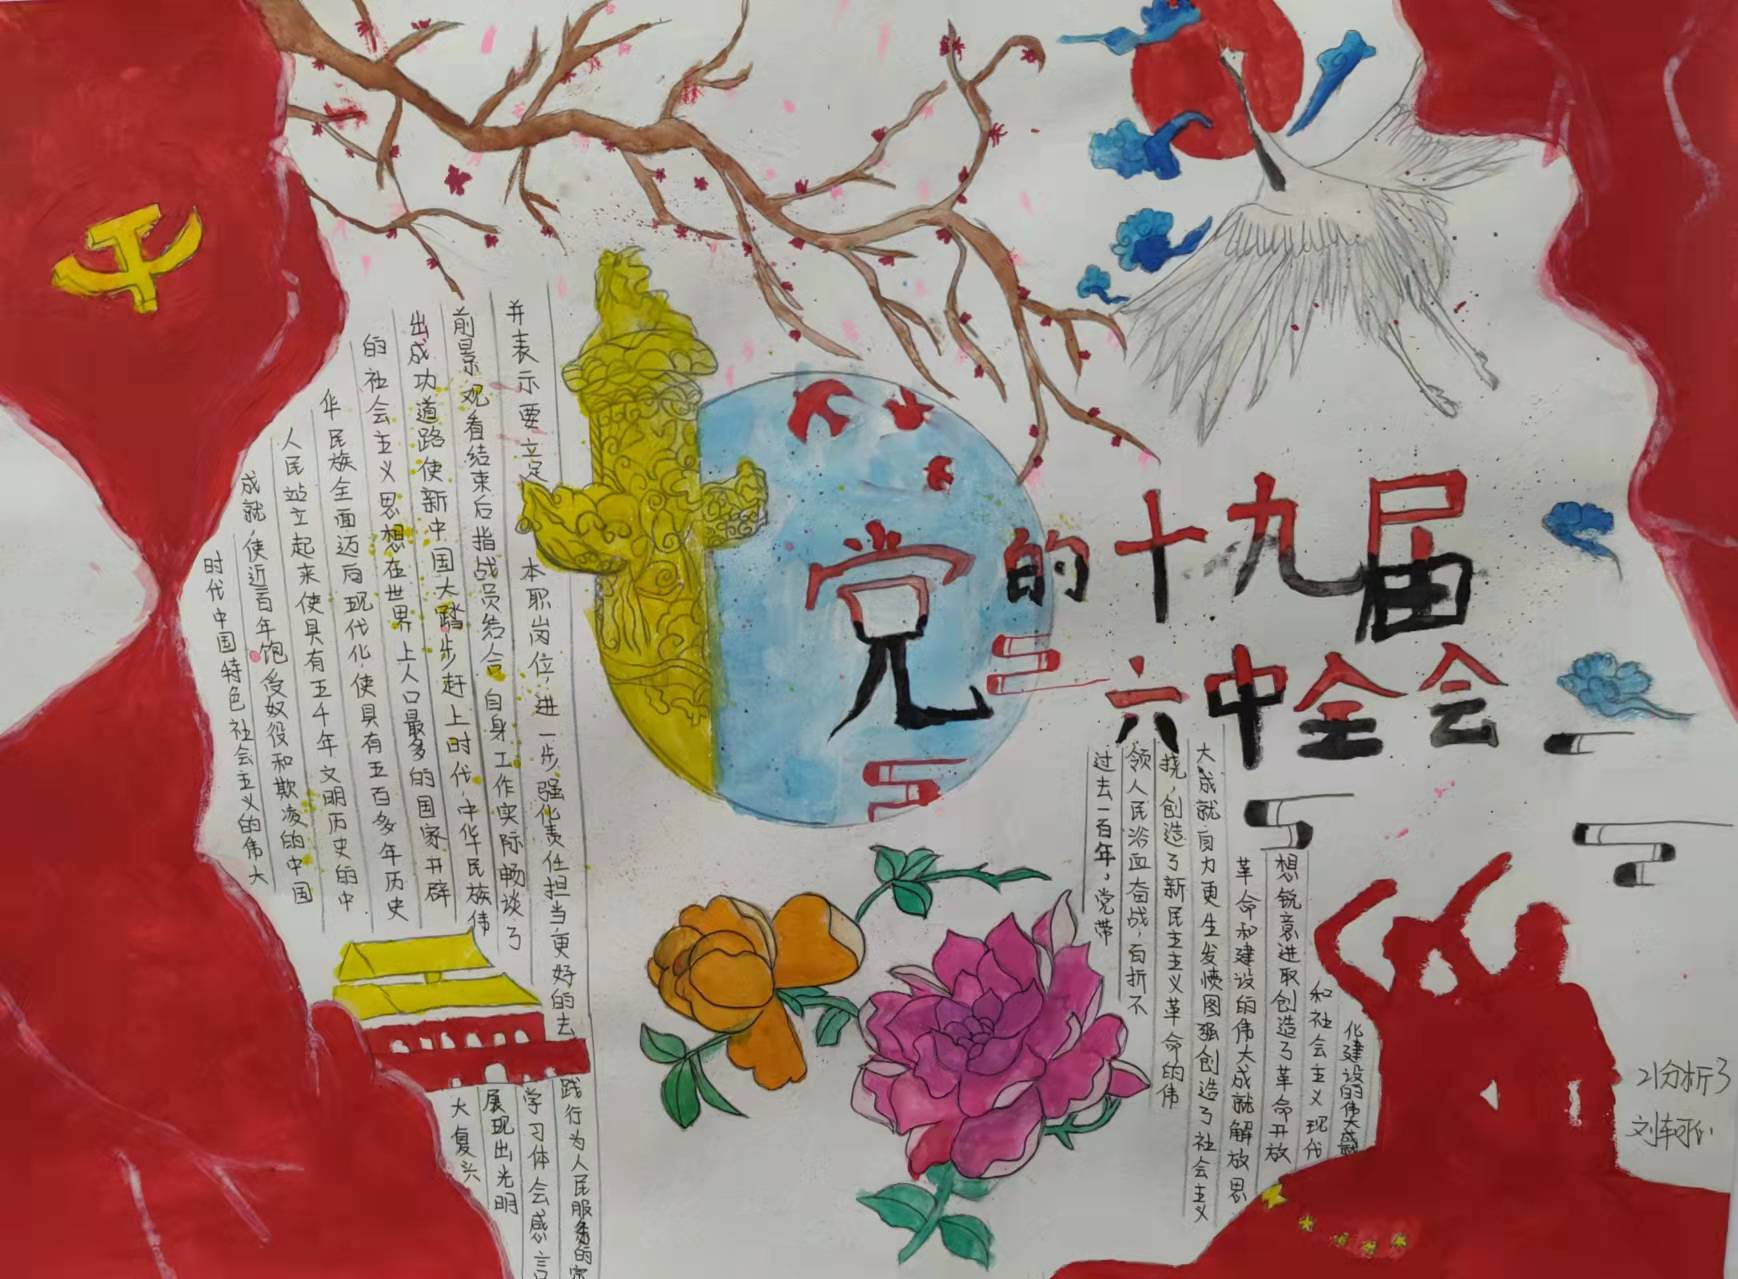 党的十九届
六中全会
过去一百年，党带
领人民浴血奋战，百折不
挠，创造了新民主主义革命的伟
大成就自力更生发愤图强创造了社会主义
革命和建设的伟大成就解放思
想锐意进取创造了革命开放
和社会主义现代
化建设的伟大
时代中国特色社会主义的伟大
成就，使近百年饱受奴役和欺凌的中国
人民站立起来使具有五千年文明历史的中
华民族全面迈向现代化，使具有五百多年历史
的社会主义思想在世界上人口最多的国家开辟
出成功道路使新中国大踏步赶上时代，中华民族伟
大复兴
展现出光明
前景 观看结束后指战员结合自身工作实际畅谈了
学习体会感言
并表示要立足本职岗位，进一步强化责任担当更好的去
践行为人民服务的宗
21分析3